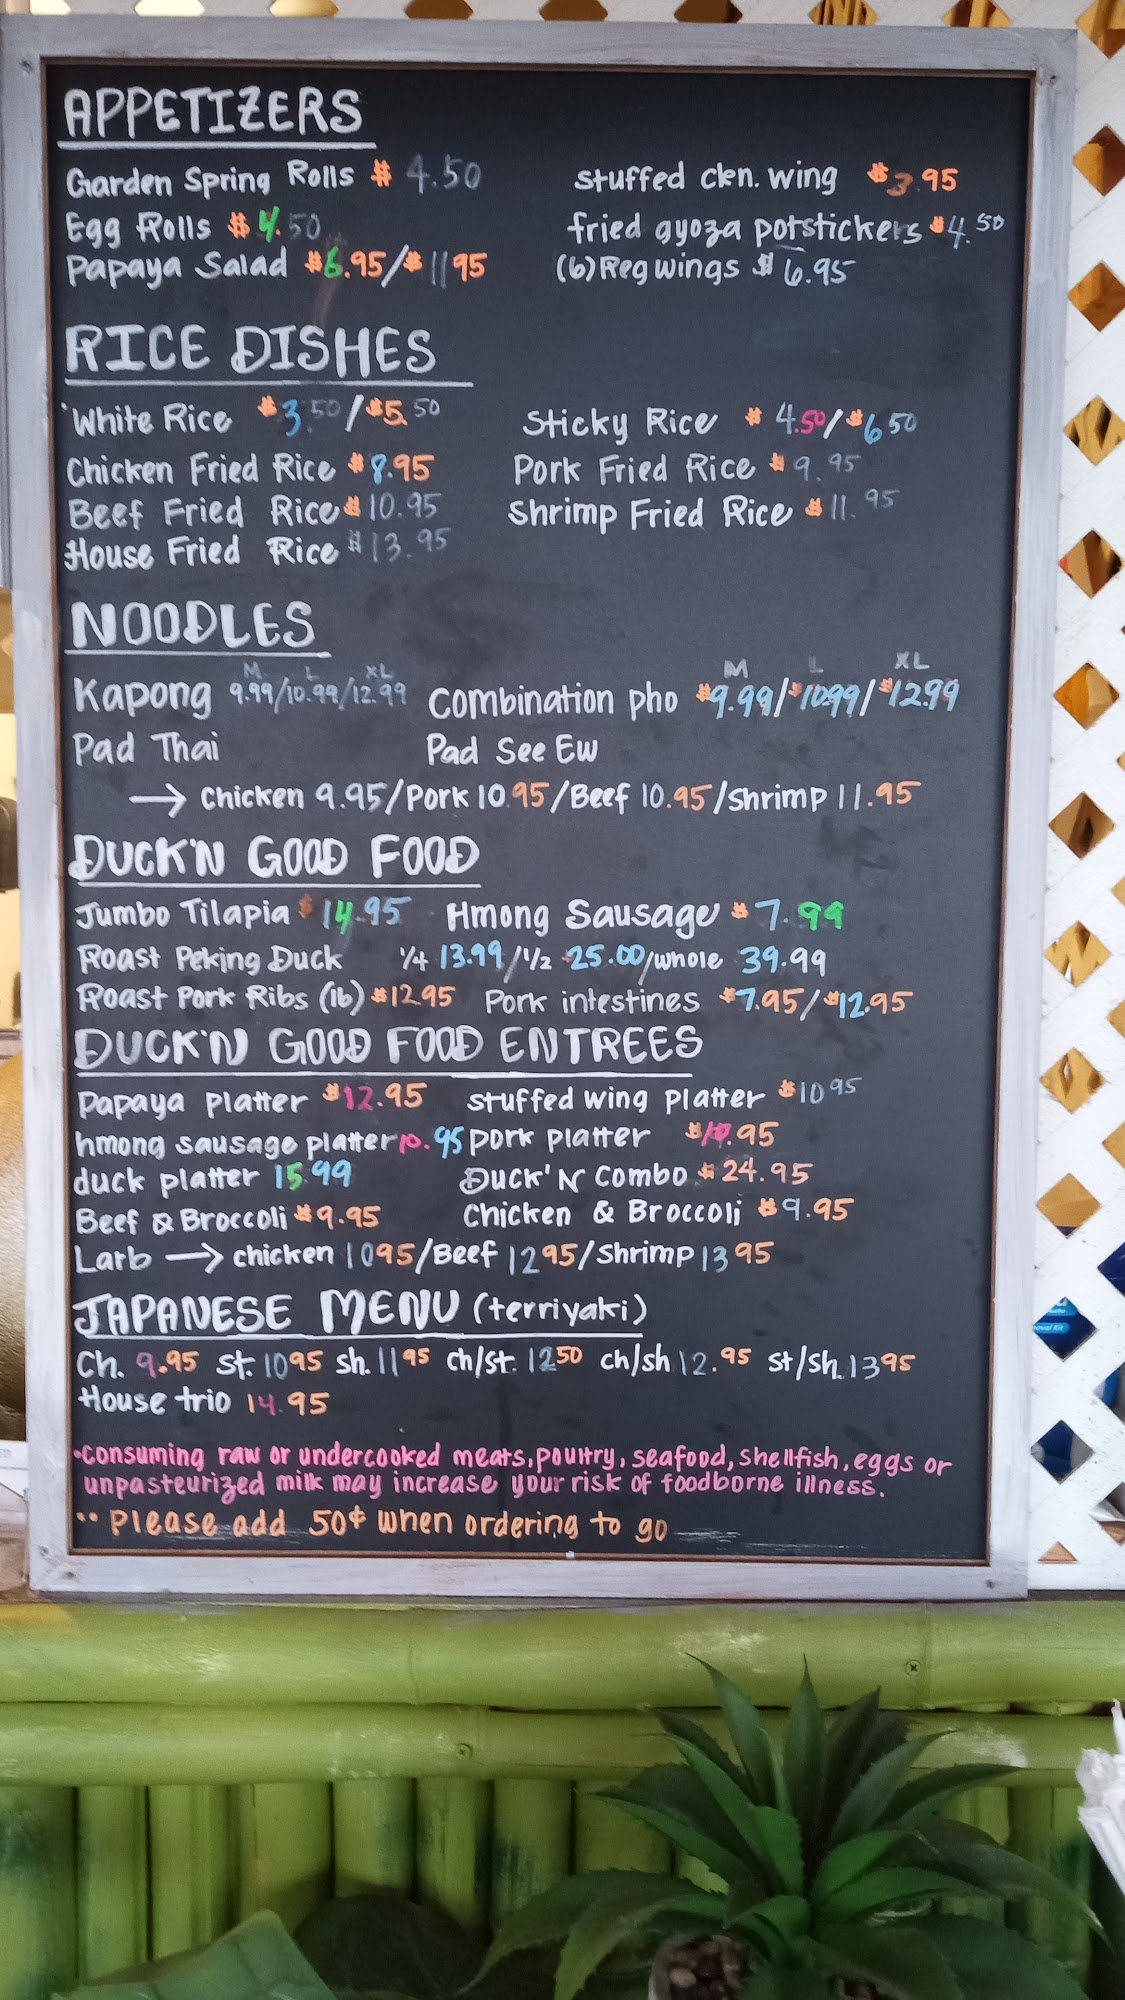 APPETIZERS
Garden Spring Rolls $ 4.50 stuffed ckn. wing $3.95
Egg Rolls $4.50 fried gyoza potstickers $4.50
Papaya Salad $6.95/$1195 (6) Reg wings $6.95
RICE DISHES
White Rice $3.50/$5.50 Sticky Rice $4.50/$650
Chicken Fried Rice $8.95 Pork Fried Rice $9.95
Beef Fried Rice $10.95 Shrimp Fried Rice $11.95
House Fried Rice $13.95
NOODLES
M L XL M L XL
Kapong 9.99/10.99/12.99 Combination pho $9.99/$10.99/$12.99
Pad Thai Pad See Ew
→ Chicken 9.95/Pork 10.95/Beef 10.95/Shrimp 11.95
DUCK'N GOOD FOOD
Jumbo Tilapia $14.95 Hmong Sausage $7.99
Roast Peking Duck 1/4 13.99/1/2 25.00/whole 39.99
Roast Pork Ribs (lb) $12.95 Pork intestines $7.95/$12.95
DUCK'N GOOD FOOD ENTREES
Papaya platter $12.95 stuffed wing platter $10 95
hmong sausage platter 10.95 pork platter .95
duck platter 15.99 Duck'N Combo $24.95
Beef & Broccoli $9.95 Chicken & Broccoli $9.95
Larb → chicken 1095/Beef 1295/Shrimp 13 95
JAPANESE MENU (terriyaki)
Ch. 9.95 st. 1095 sh. 1195 ch/st. 1250 ch/sh 12.95 st/sh. 1395
House trio 14.95
•Consuming raw or undercooked meats, poultry, seafood, shellfish, eggs or
unpasteurized milk may increase your risk of foodborne illness.
•• Please add 50¢ when ordering to go